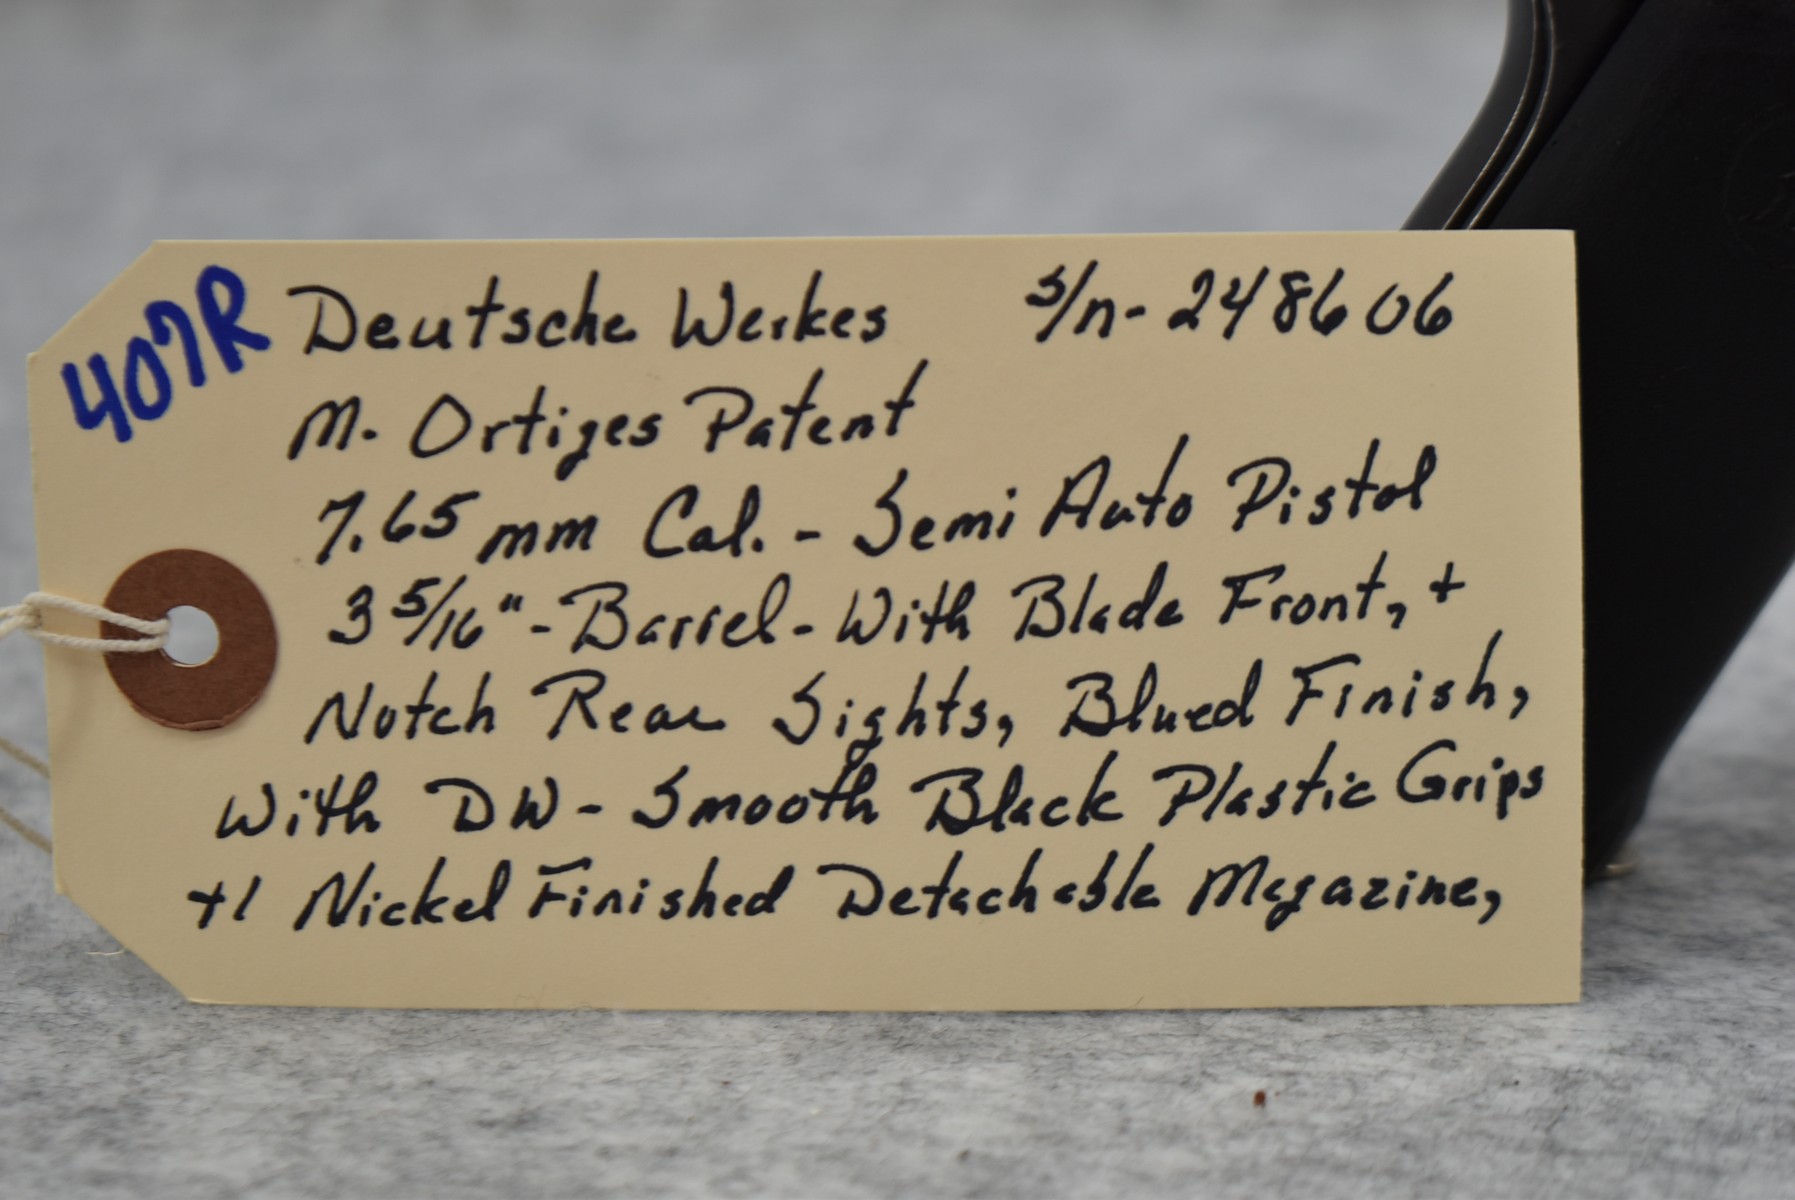 407R
Deutsche Werkes s/n- 248606
M. Ortizes Patent
7.65 mm Cal. - Semi Auto Pistol
3 5/16" - Barrel - With Blade Front, +
Notch Rear Sights, Blued Finish,
With DW - Smooth Black Plastic Grips
+1 Nickel Finished Detachable Magazine,